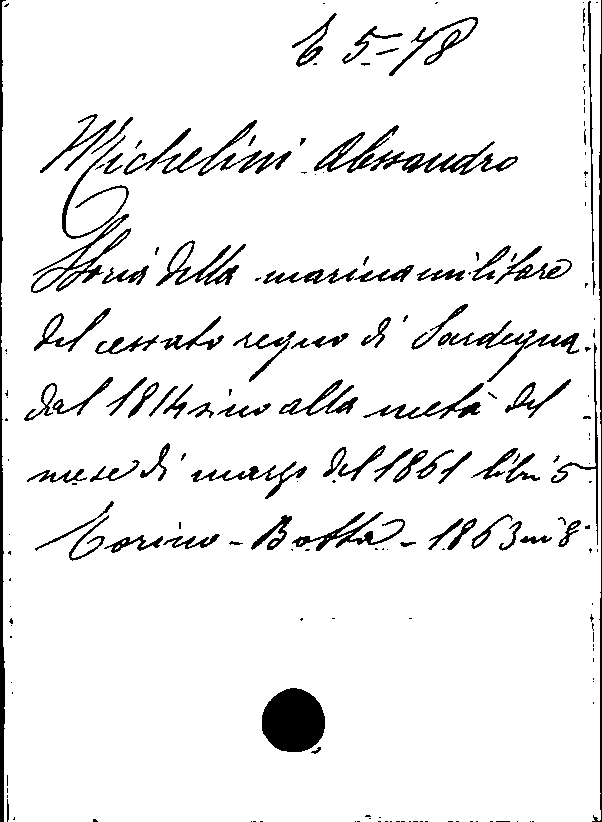 E. 5-78
Michelini Alessandro
Storia della marina militare
del cessato regno di Sardegna
dal 1814 sino alla metà del
mese di marzo del 1861 libri 5
Torino - Botta - 1863 in 8°